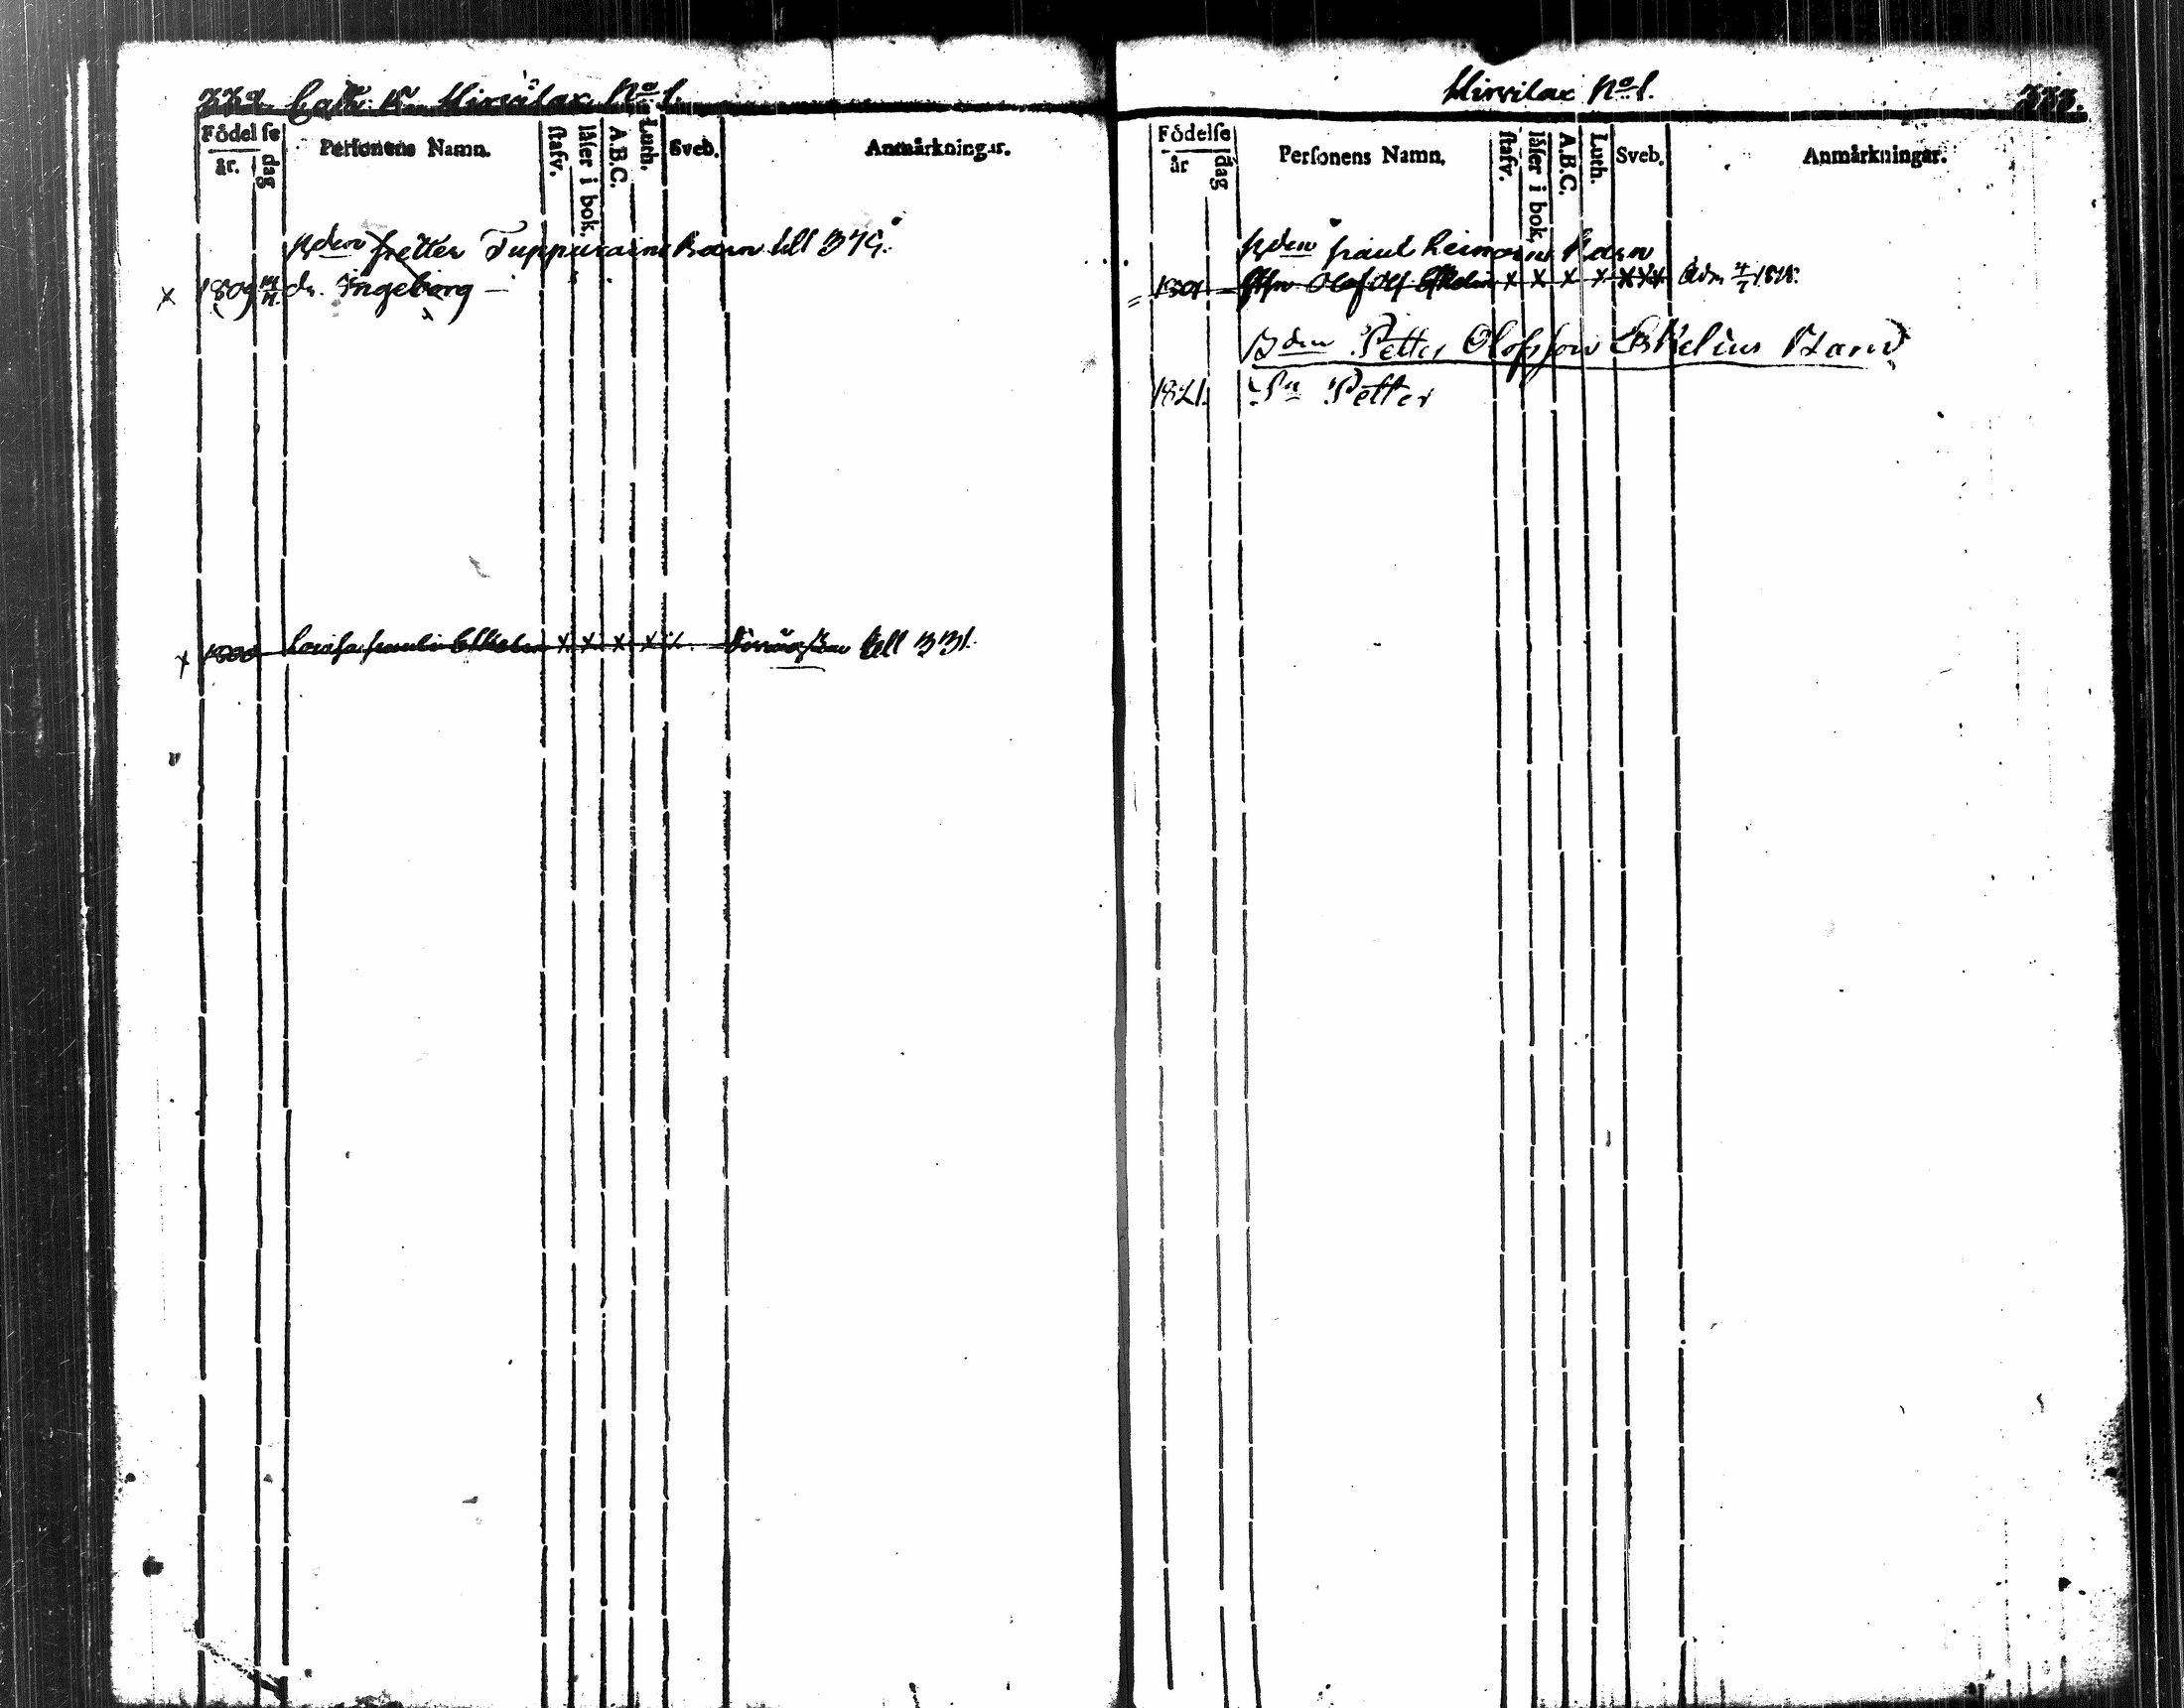 332. Hirvilax No 1.
Födelse
år. dag
Perſonens Namn.
ſtafv.
låſer i bok.
A.B.C.
Luth.
Sveb.
Anmårkningar.
Bden Petter Tuppurains Barn till 379.
x 1809 dr. Ingeborg —
x 1800 x x x x x till 331.
Hirvilax No 1. 333.
Födelſe
år dag
Perſonens Namn.
ſtafv.
låſer i bok.
A.B.C.
Luth.
Sveb.
Anmårkningar.
Bden Paul Barn
1801 Olof x x x x 1818.
Bden Petter Olofsson Eskelins Barn
1821. Sn Petter